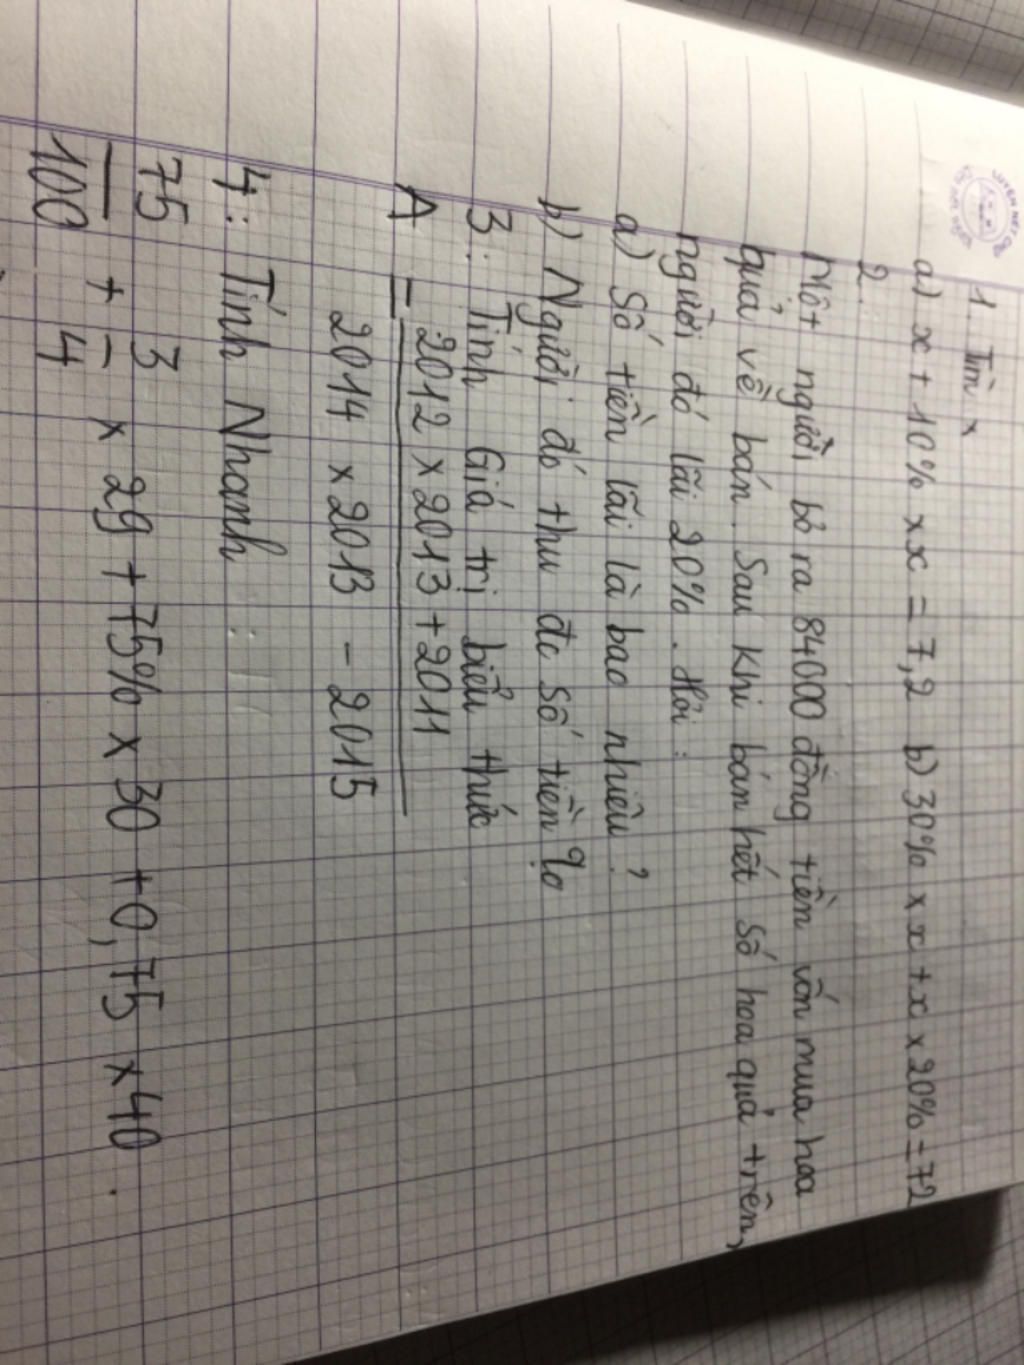 1. Tìm x
a) x + 10% x x = 7,2 b) 30% x x + x x 20% = 72
2.
Một người bỏ ra 84000 đồng tiền vốn mua hoa
quả về bán. Sau khi bán hết số hoa quả trên,
người đó lãi 20%. Hỏi:
a) Số tiền lãi là bao nhiêu?
b) Người đó thu đc số tiền %
3: Tính Giá trị biểu thức
A = 2012 x 2013 + 2011
2014 x 2013 - 2015
4: Tính Nhanh:
75/100 + 3/4 x 29 + 75% x 30 + 0,75 x 40.